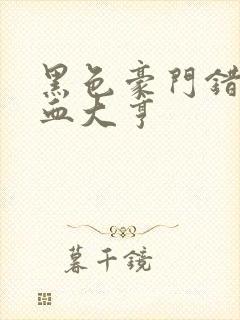 黑色豪門錯
血大亨
暮千鏡